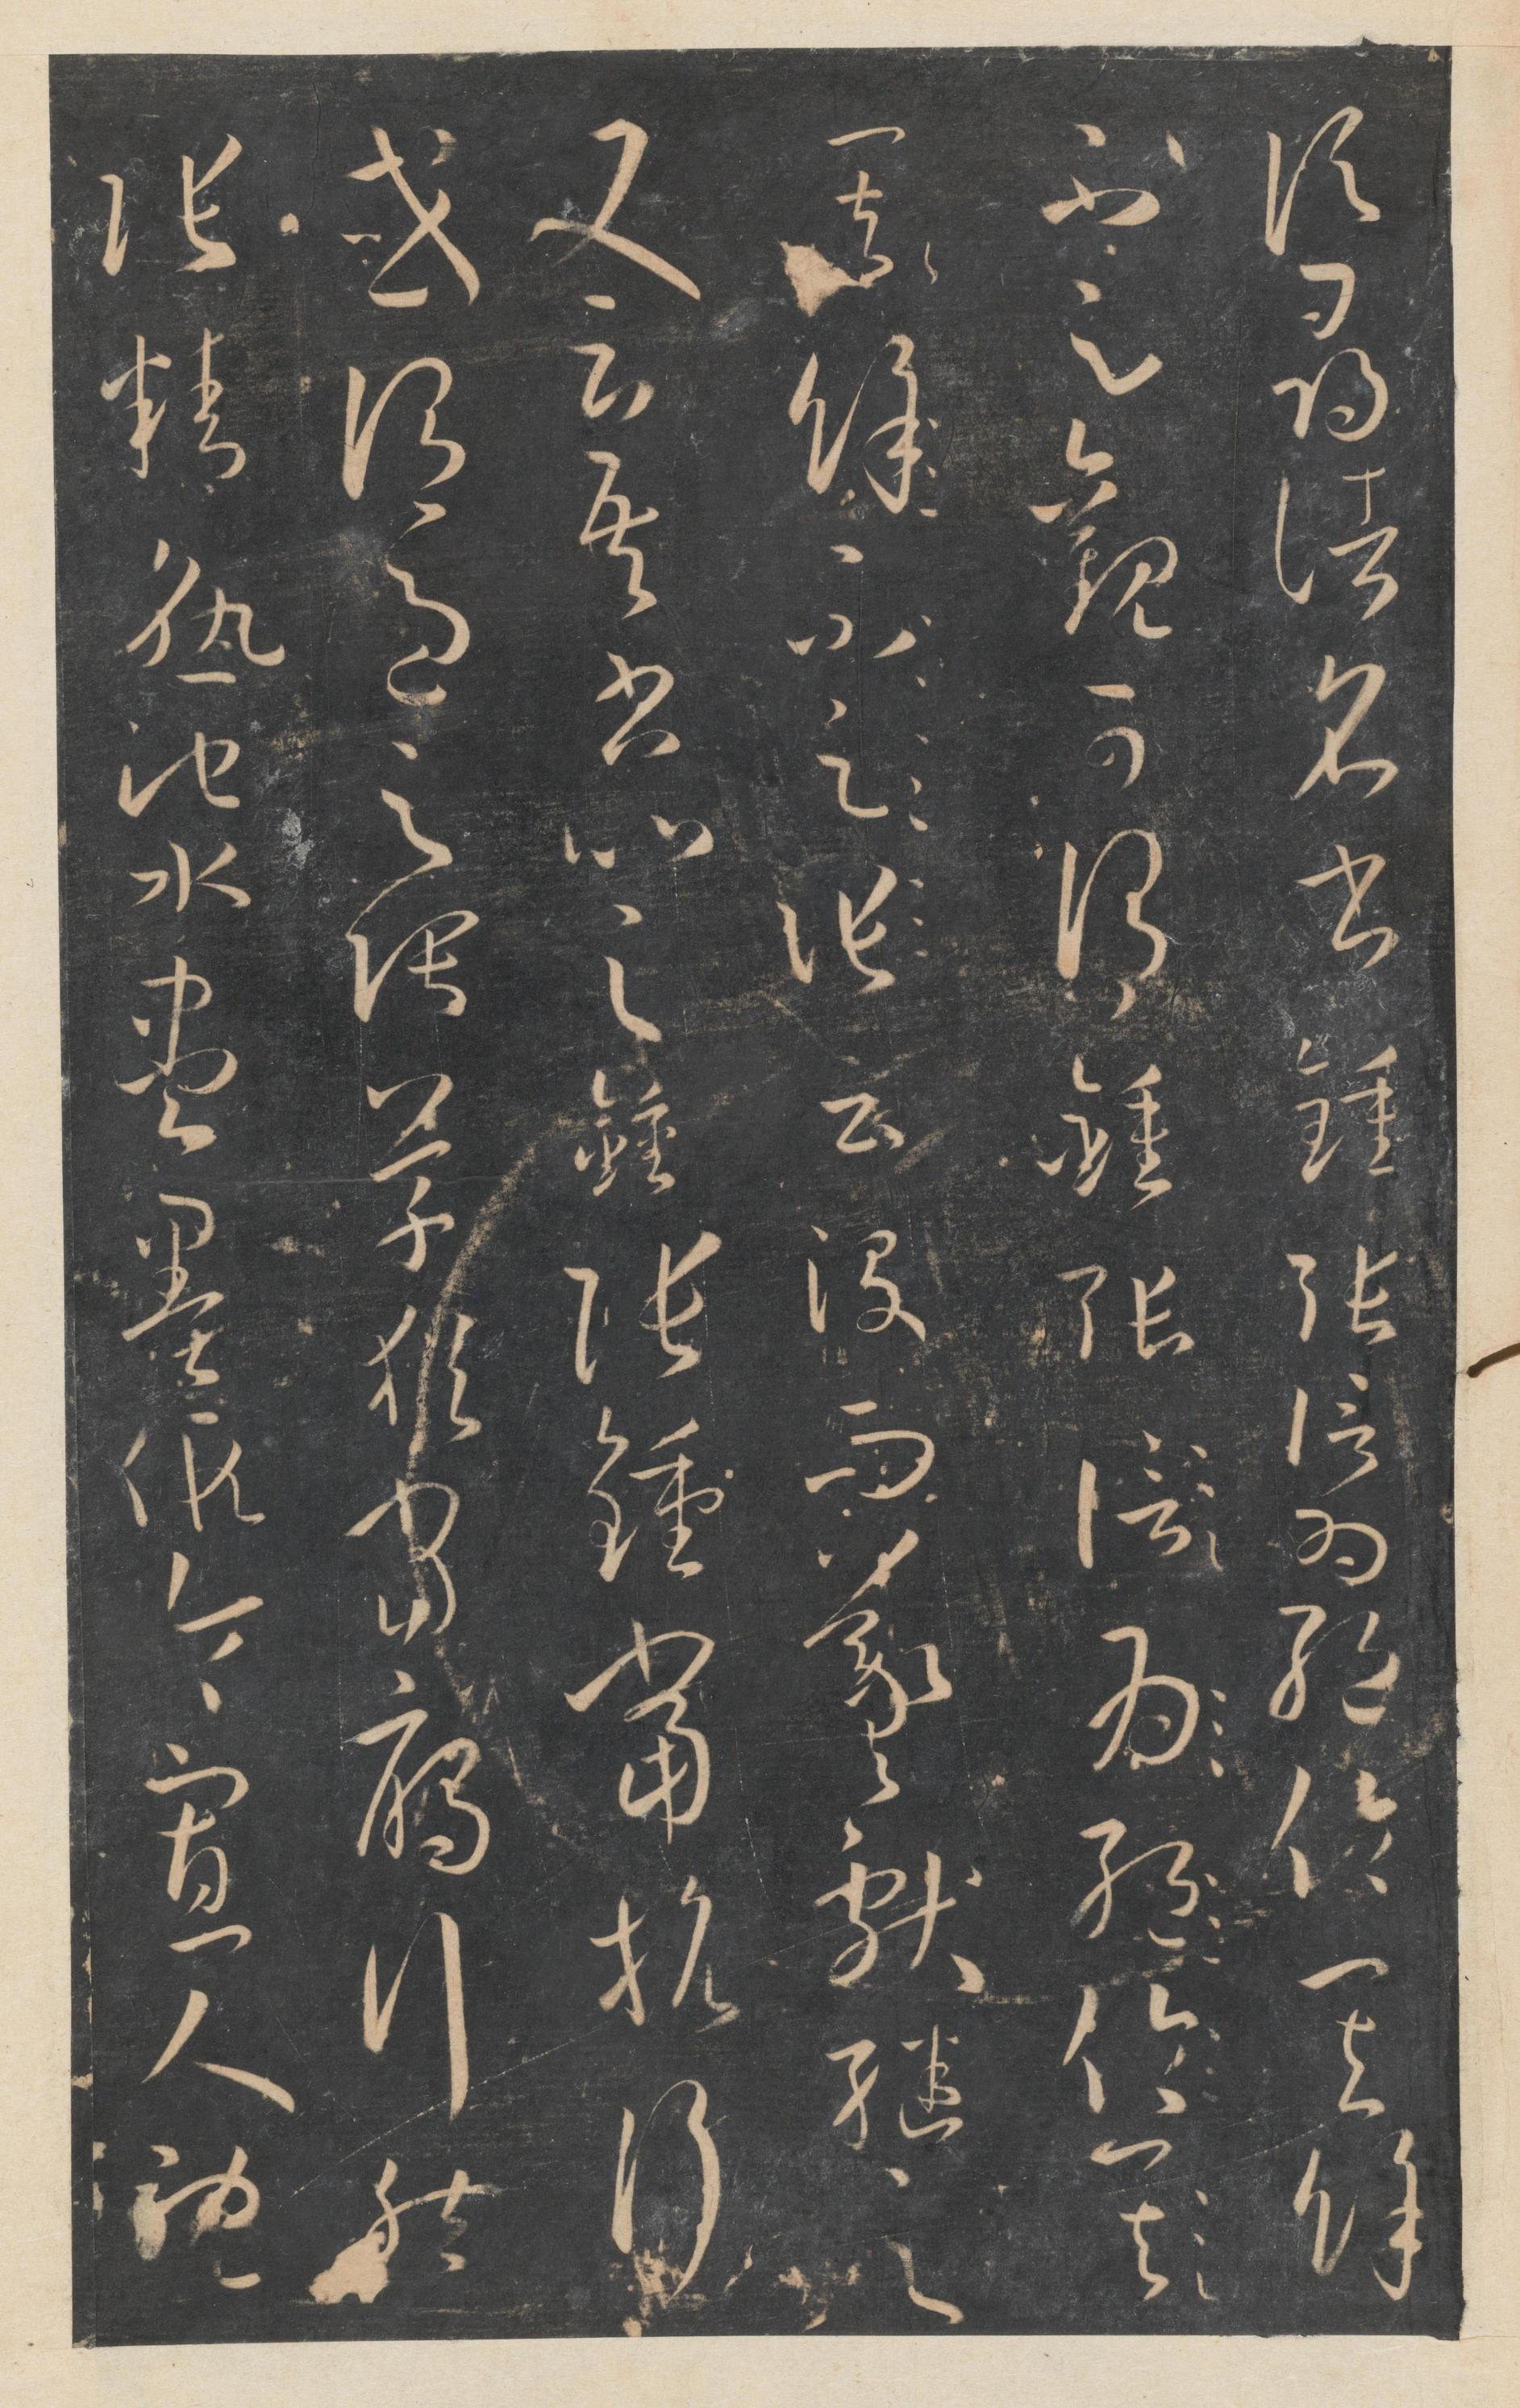 頃尋諸名書鍾張信為絕倫其餘
不足觀可謂鍾張信為絕倫其
其餘不足張云沒而羲獻繼之
又云吾書比之鍾張鍾當抗行
或謂過之張草猶當鴈行然
張精熟池水盡墨假令寡人耽